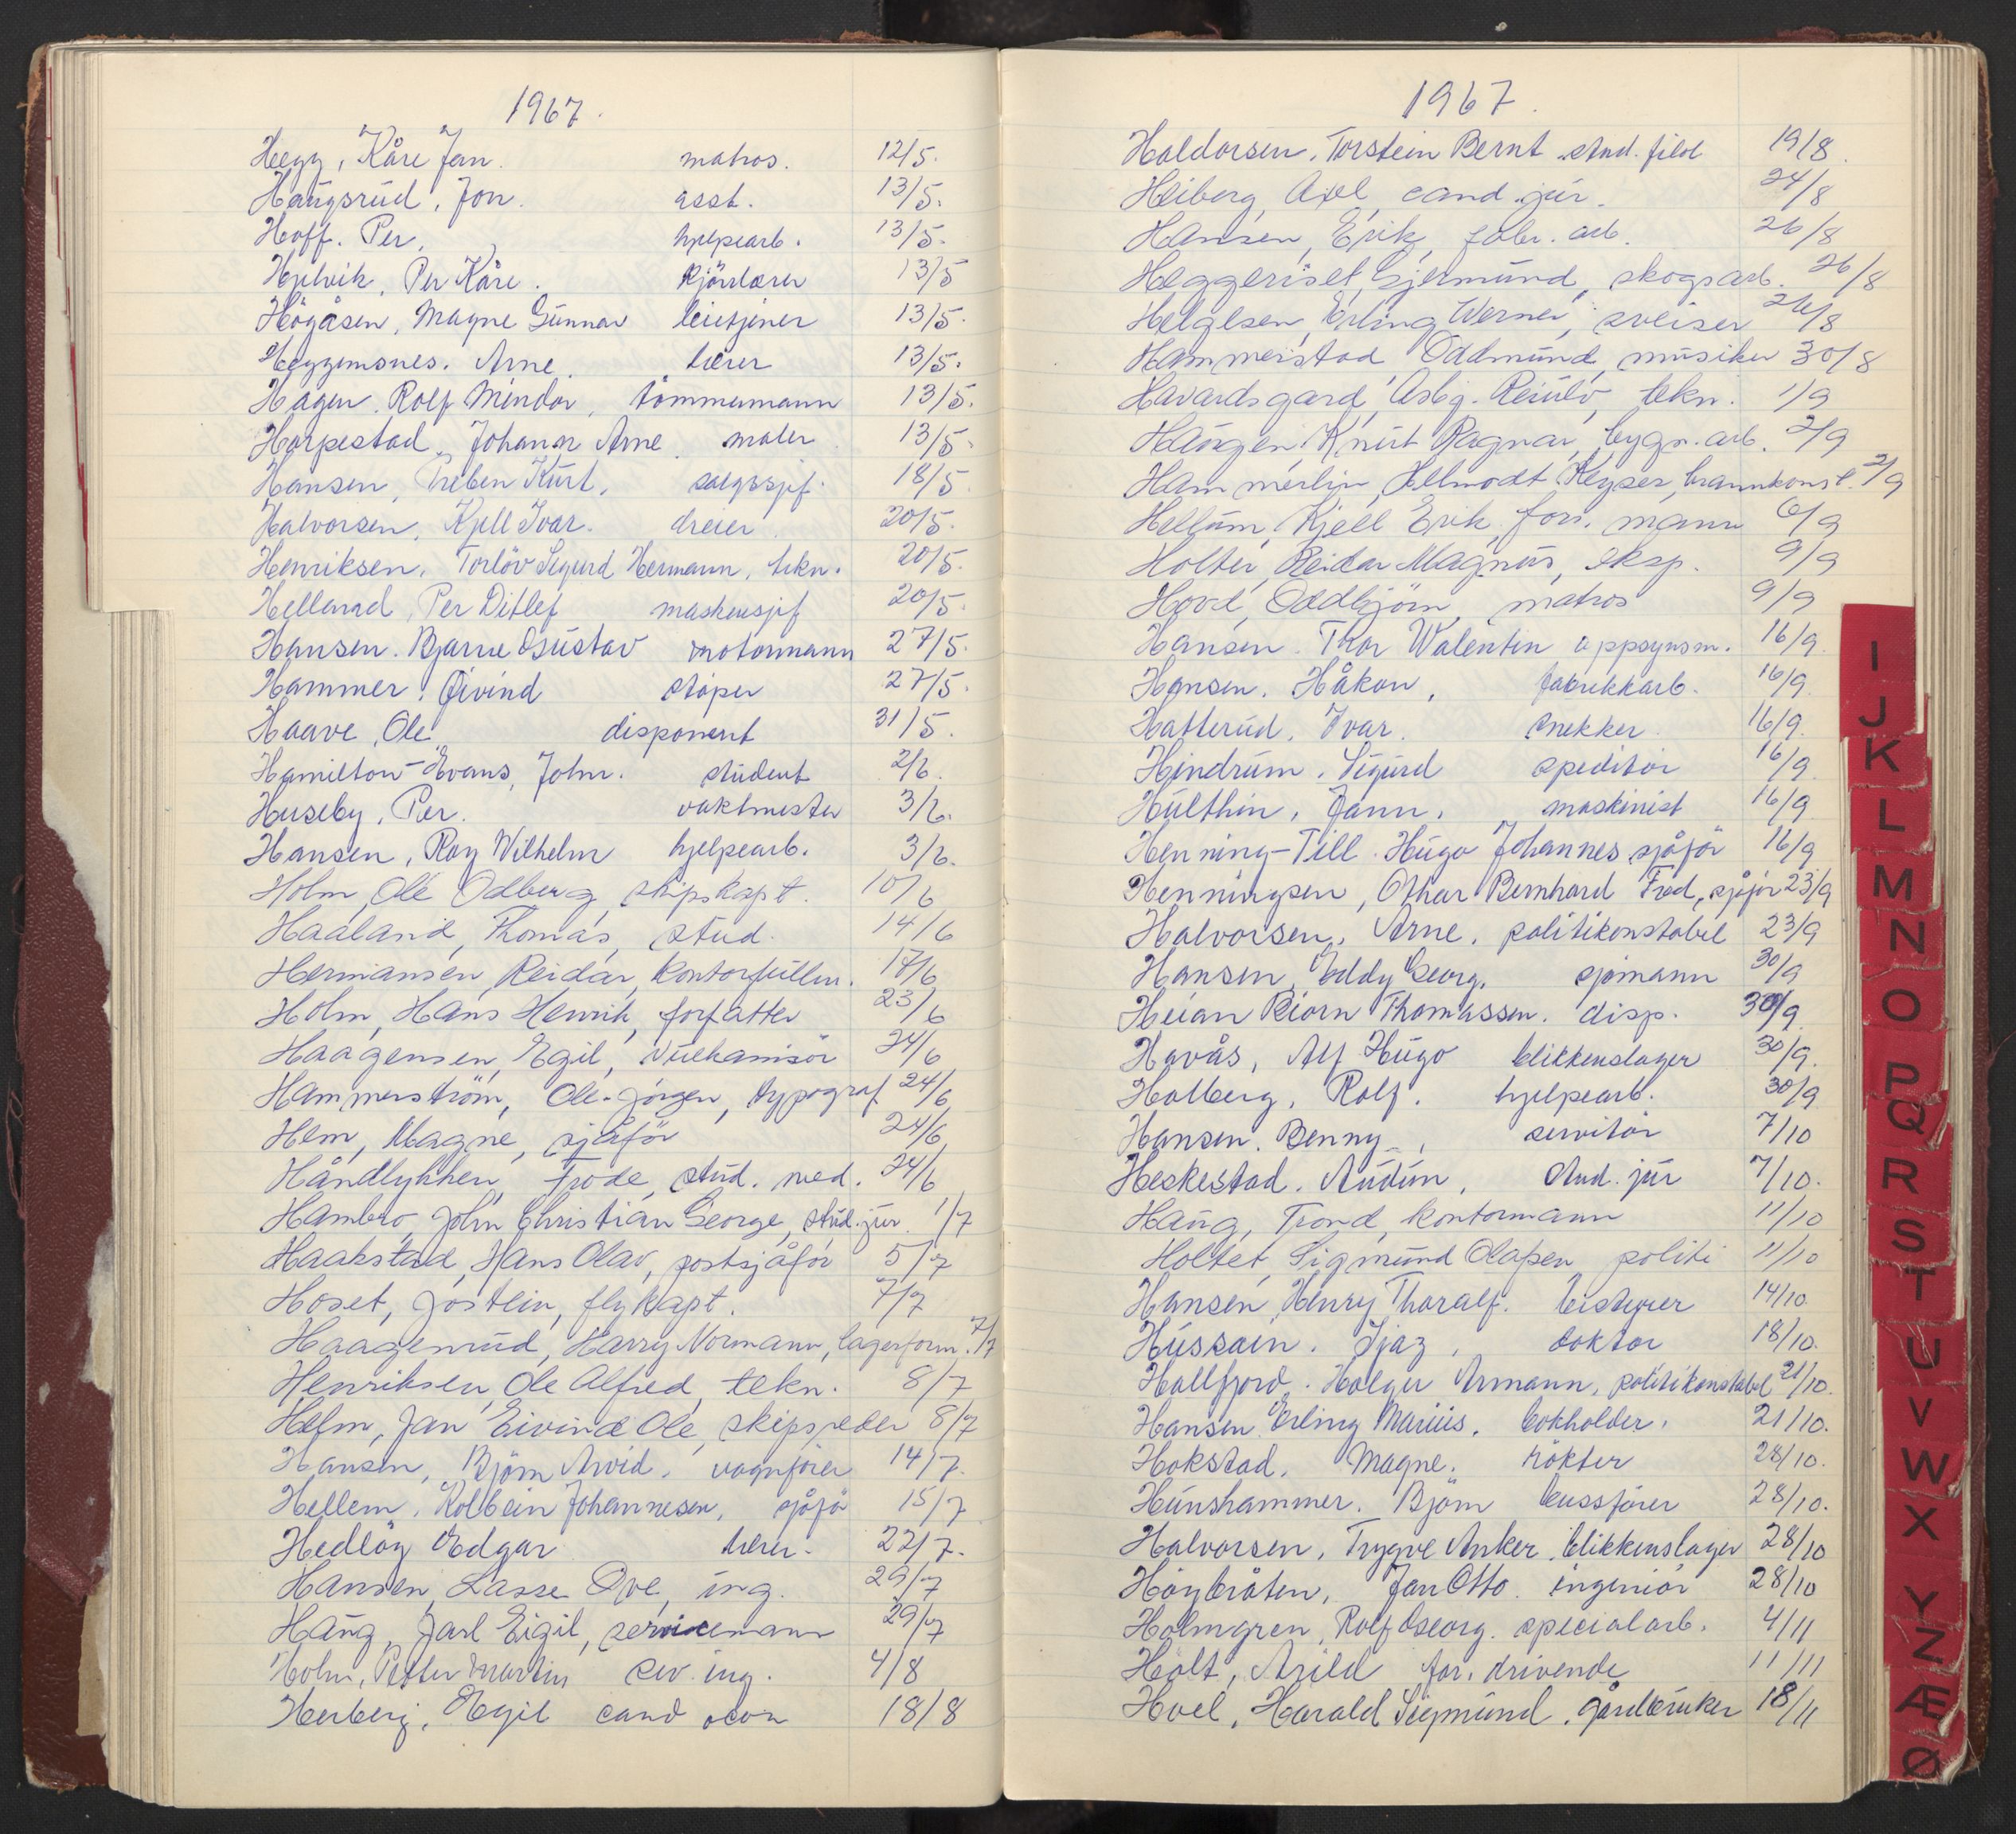 1967.
Hegg, Kåre Jan. matros. 12/5.
Haugsrud, Jon. asst. 13/5.
Hoff. Per, hjelpearb. 13/5.
Hjelvik, Per Kåre. 13/5
Högåsen, Magne Gunnar 13/5.
Heggemsnes. Arne. lærer 13/5.
Hagen. Rolf Mindor, tömmermann 13/5.
Harpestad, Johann Arne, maler 13/5.
Hansen, Preben Kurt, salgssjef. 18/5
Halvorsen, Kjell Ivar. dreier 20/5.
Henriksen, Torlöv Sigurd Hermann, tekn. 20/5.
Helland, Per Ditlef 20/5.
Hansen. Bjarne Gustav motormann 27/5.
Hammer, Öivind stöper 27/5.
Haave, Ole disponent 31/5.
Hamilton-Evans, John. student 2/6.
Huseby, Per. vaktmester 3/6.
Hansen, Roy Wilhelm hjelpearb. 3/6.
Holm, Ole Odberg, skipskapt. 10/6
Haaland, Thomas, stud. 14/6
Hermansen, Reidar, kontorfullm. 17/6
Holm, Hans Henrik, forfatter 23/6
Haagensen, Egil, vulkanisör 24/6
Hammerström, Ole-Jörgen, typograf 24/6
Hem, Magne, sjåför 24/6
Håndlykken, Frode, stud. med. 24/6
Hambro, John Christian George, stud. jur. 1/7
Haakstad, Hans Olav, postsjåför 5/7
Hoset, Jostein, flykapt. 7/7
Haagenrud, Harry Normann, lagerform. 7/7
Henriksen, Ole Alfred, tekn. 8/7
Holm, Jan Eivind Ole, skipsreder 8/7
Hansen, Björn Arvid, vognförer 14/7.
Hellem, Kolbein Johannesen, sjåför 15/7
Hedlöy Edgar lærer. 22/7.
Hansen, Lasse Ove, ing. 29/7
Haug, Jarl Eigil, servicemann 29/7
Holm, Petter Martin siv. ing. 4/8
Herberg, Egil cand oecon 18/8
1967.
Haldorsen, Torstein Bernt stud. filol 19/8.
Heiberg, Axel, cand. jur. 24/8
Hansen, Erik, fabr. arb. 26/8
Heggeriset, Gjermund, skogsarb. 26/8
Helgesen, Erling Werner, sveiser 26/8
Hammerstad, Oddmund, musiker 30/8
Havardsgard, Asbj. Reiulv, tekn. 1/9
Haugen, Knut Ragnar, bygn. arb. 2/9
Hammerlin, Helmodt Keyser, brannkonst. 2/9
Hellum, Kjell Erik, fors. mann 6/9
Holter, Reidar Magnus, eksp. 9/9
Hovd, Oddbjörn, matros 9/9
Hansen. Thor Walentin oppsynsm. 16/9.
Hansen. Håkon, fabrikkarb. 16/9.
Hatterud, Ivar. snekker. 16/9.
Hindrum, Sigurd speditör 16/9.
Hulthin, Jann, maskinist 16/9
Henning-Till. Hugo Johannes sjåför 16/9
Henningsen, Othar Bernhard Fred, sjåför 23/9
Halvorsen, Arne, politikonstabel 23/9
Hansen, Eddy Georg, sjömann 30/9
Heian Biorn Thomassen. disp. 30/9.
Havås, Alf Hugo blikkenslager 30/9.
Holberg, Rolf. hjelpearb. 30/9
Hansen. Benny, servitör 7/10
Heskestad. Audun, stud. jur 7/10.
Haug, Trond, kontormann 11/10
Holtet, Sigmund Olafsen, politi 11/10
Hansen, Henry Thoralf. bestyrer 14/10.
Hussain. Ijaz, doktor 18/10.
Hallfjord, Holger Armann, politikonstabel 21/10.
Hansen Erling Marius. bokholder. 21/10.
Hokstad, Magne. rökter 28/10.
Hunshammer. Björn bussförer 28/10.
Halvorsen, Trygve Anker, blikkenslager 28/10
Höybråten, Jan Otto. ingeniör 28/10
Holmgren, Rolf Georg. specialarb. 4/11
Holt, Arild for. drivende 11/11
Hoel, Harald Sigmund, gårdbruker 18/11
I
J
K
L
M
N
O
P
Q
R
S
T
U
V
W
X
Y
Z
Æ
Ø